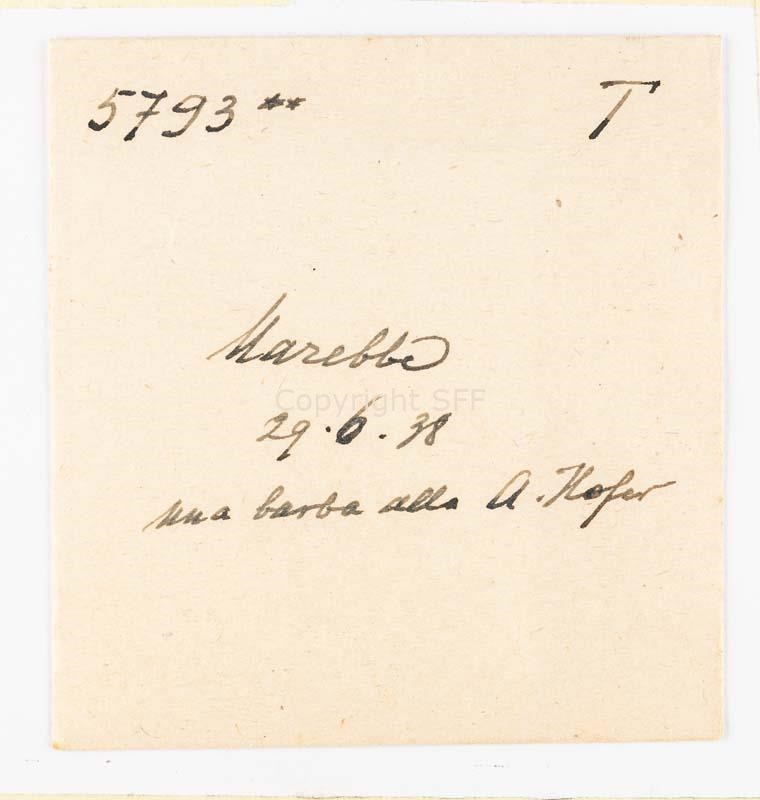 5793 ** T
Marebbe
Copyright SFF
29.6.38
una barba alla A. Hofer